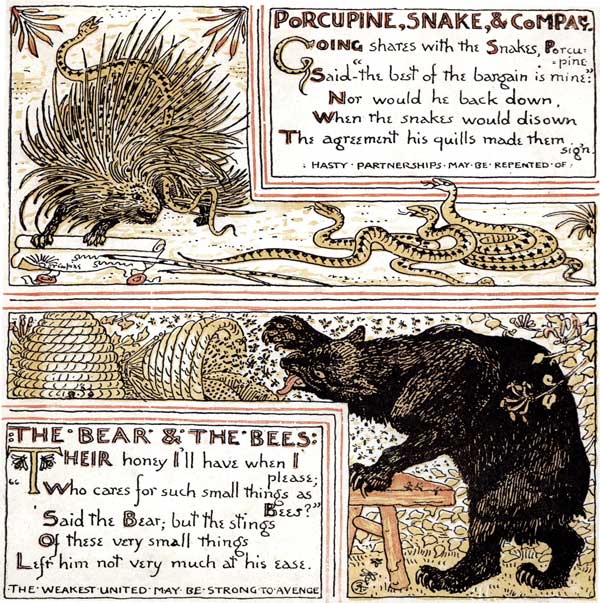 PORCUPINE, SNAKE, & COMPAY.
GOING shares with the Snakes, Porcu-
-pine
Said-"the best of the bargain is mine:"
Nor would he back down,
When the snakes would disown
The agreement his quills made them
sign.
HASTY · PARTNERSHIPS · MAY · BE · REPENTED · OF
Porcupine
THE · BEAR & THE · BEES:
"THEIR honey I'll have when I
please;
Who cares for such small things as
Bees?"
Said the Bear; but the stings
Of these very small things
Left him not very much at his ease.
THE · WEAKEST · UNITED · MAY · BE · STRONG · TO · AVENGE